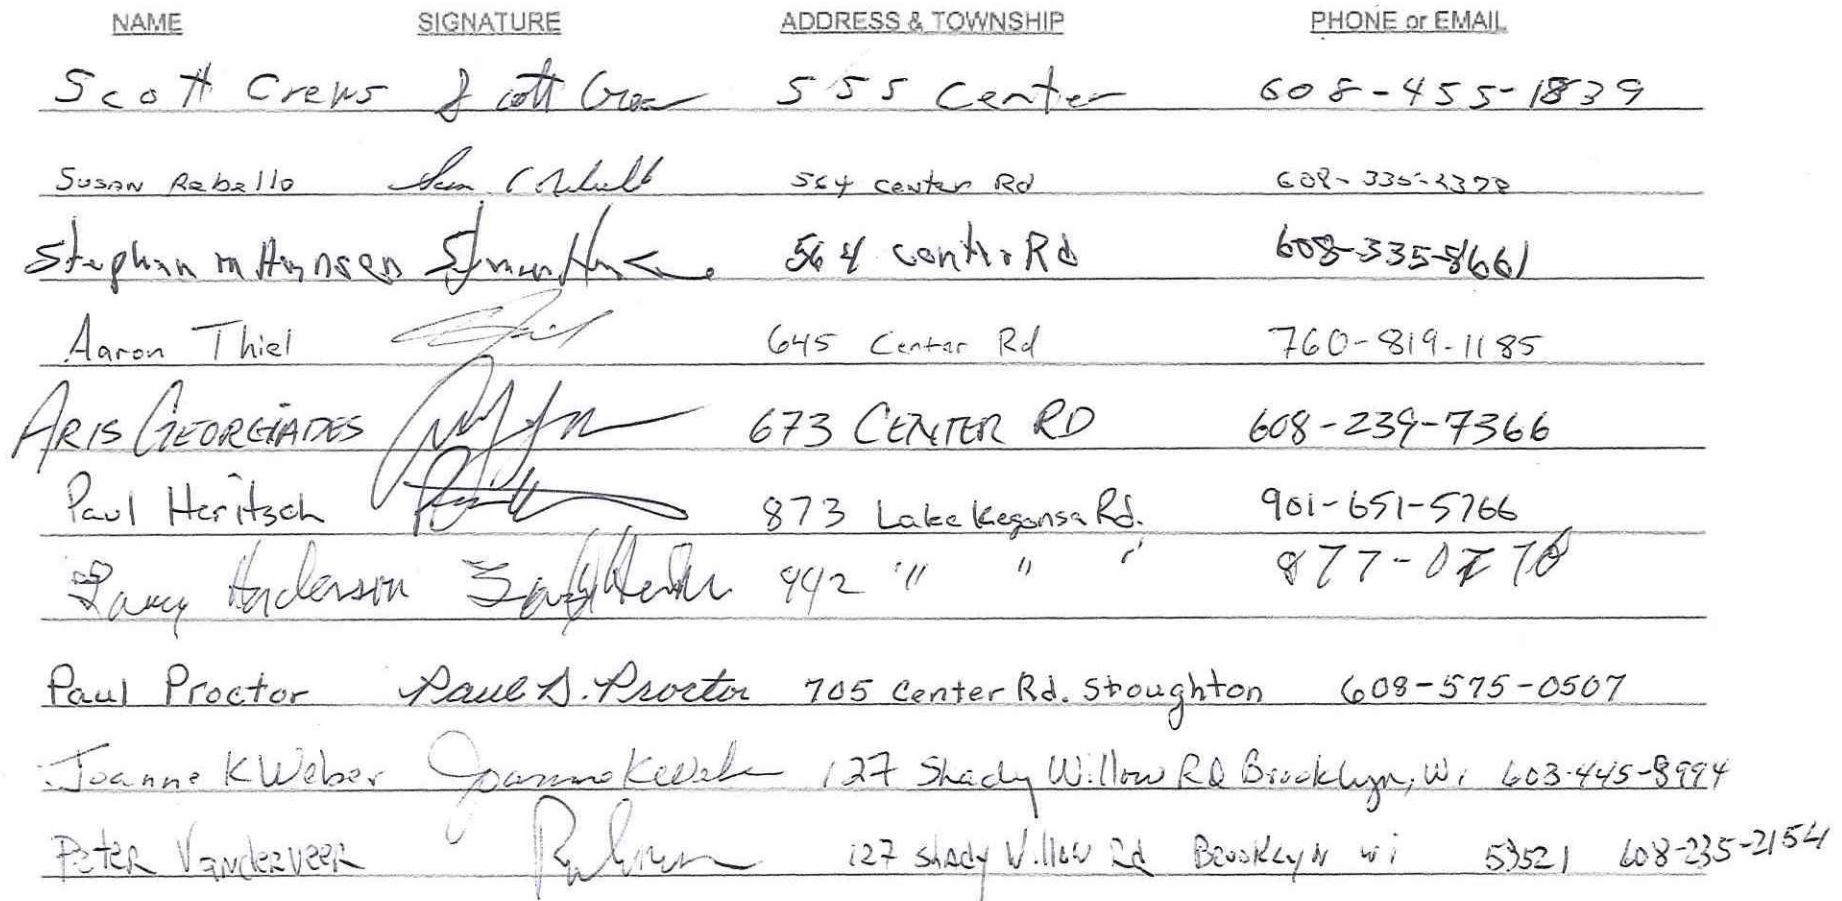 NAME SIGNATURE ADDRESS & TOWNSHIP PHONE or EMAIL
Scott Crews Scott Crew 555 Center 608-455-1839
Susan Rebello 564 Center Rd 608-335-2378
Stephen M Hansen 564 Center Rd 608-335-8661
Aaron Thiel 645 Center Rd 760-819-1185
ARIS GEORGIADES 673 CENTER RD 608-239-7366
Paul Heritsch 873 Lake Kegonsa Rd. 901-651-5766
Larry Henderson 942 " " " 877-0770
Paul Proctor Paul D. Proctor 705 Center Rd. Stoughton 608-575-0507
Joanne K Weber Joanne K Weber 127 Shady Willow Rd Brooklyn, Wi 603-445-8994
Peter Vanderveer 127 Shady Willow Rd Brooklyn wi 53521 608-235-2154